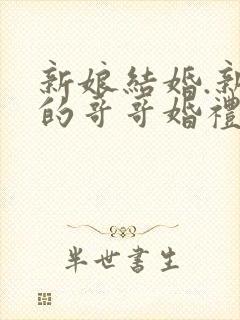 新娘結婚.新
的哥哥婚禮
半世書生